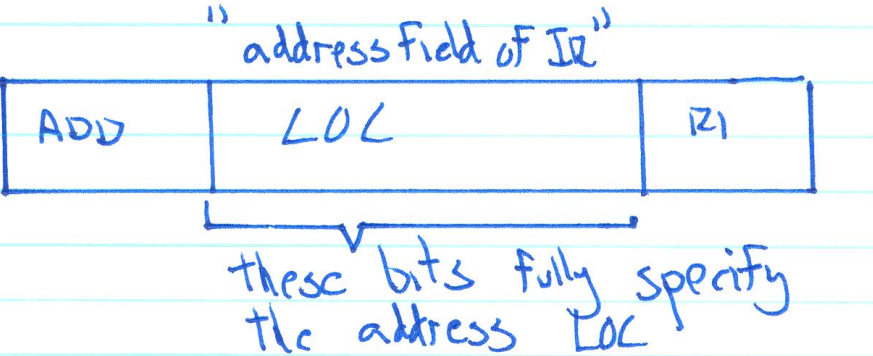 "address field of IR"
ADD LOC R1
these bits fully specify
the address LOC